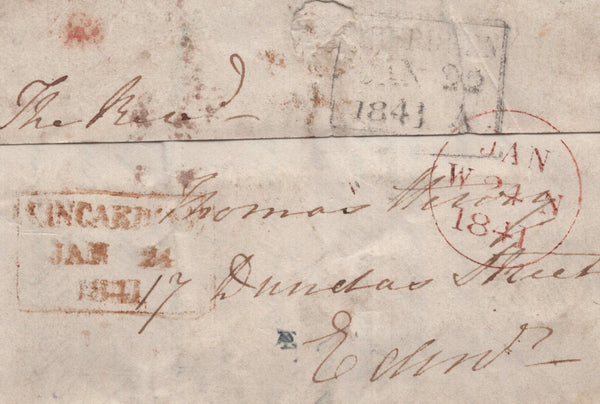 JAN 25
1841 A
The Revd
JAN
W 24 N
1841
KINCARDINE
JAN 24
1841
Thomas
17 Dundas Street
Edinr